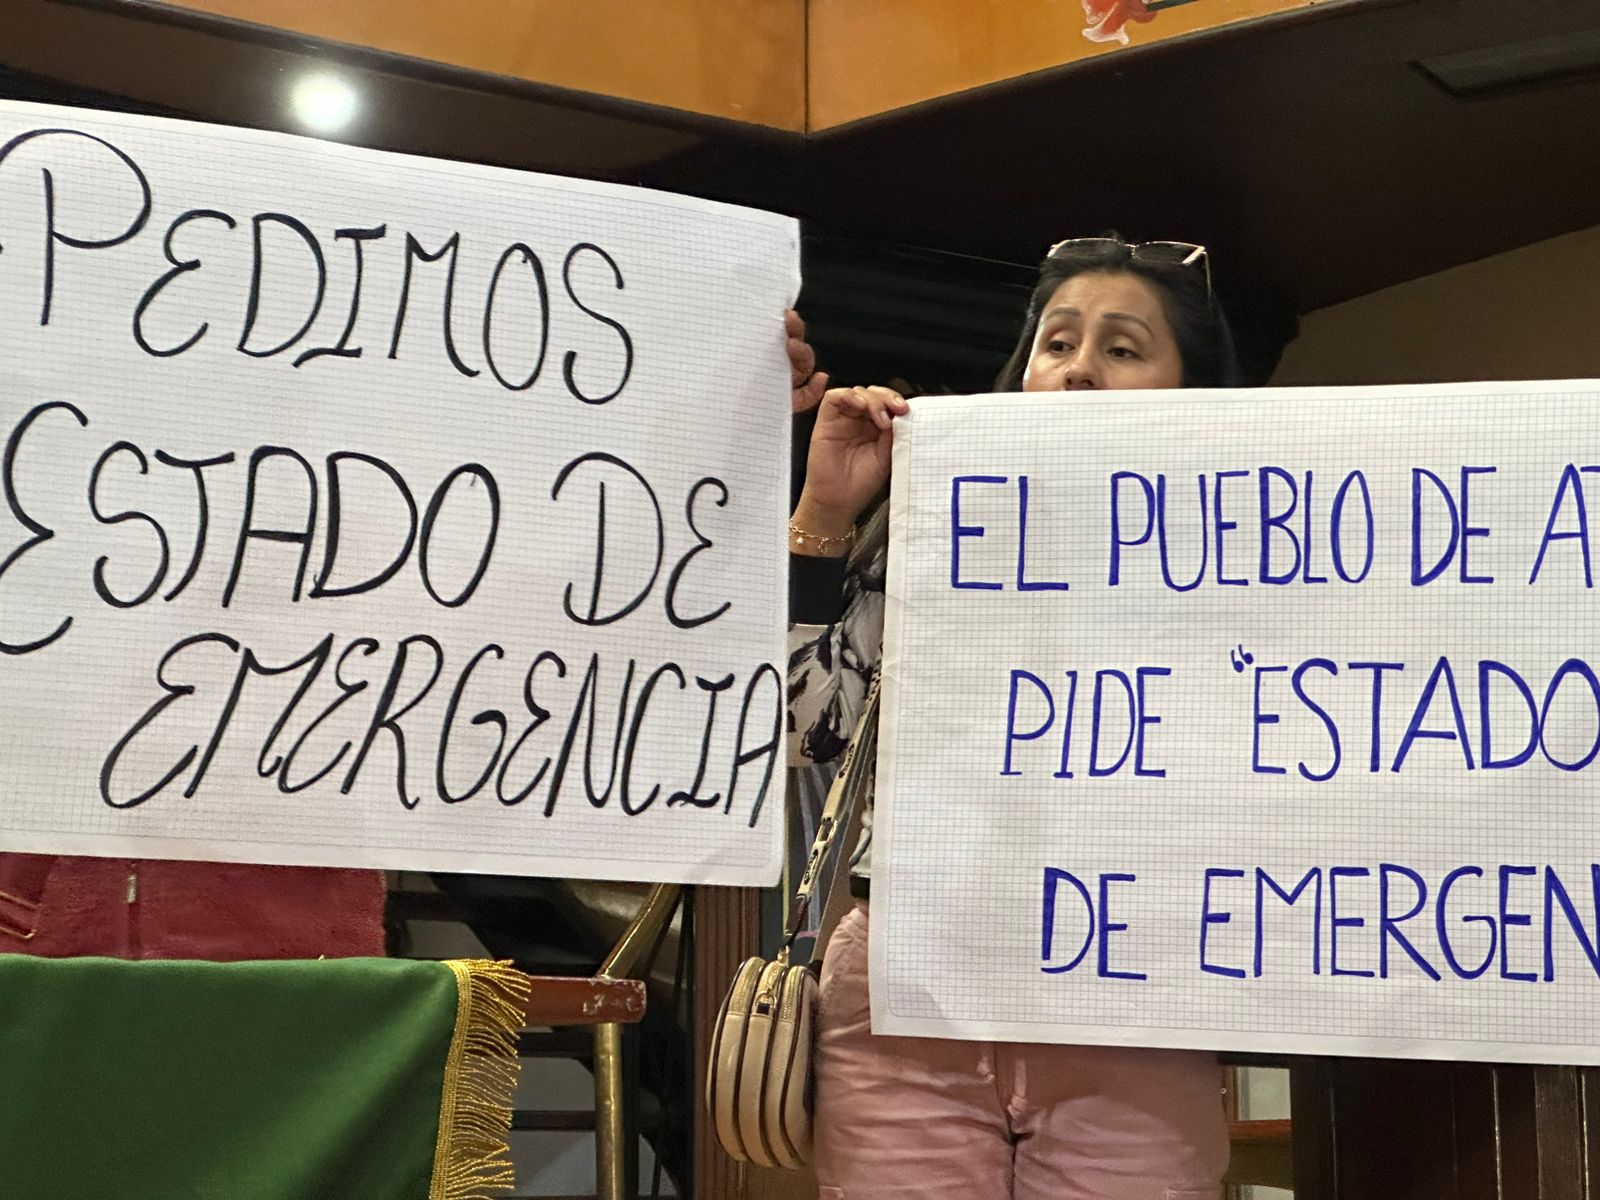 PEDIMOS
ESTADO DE
EMERGENCIA
EL PUEBLO DE
PIDE "ESTADO
DE EMERGEN